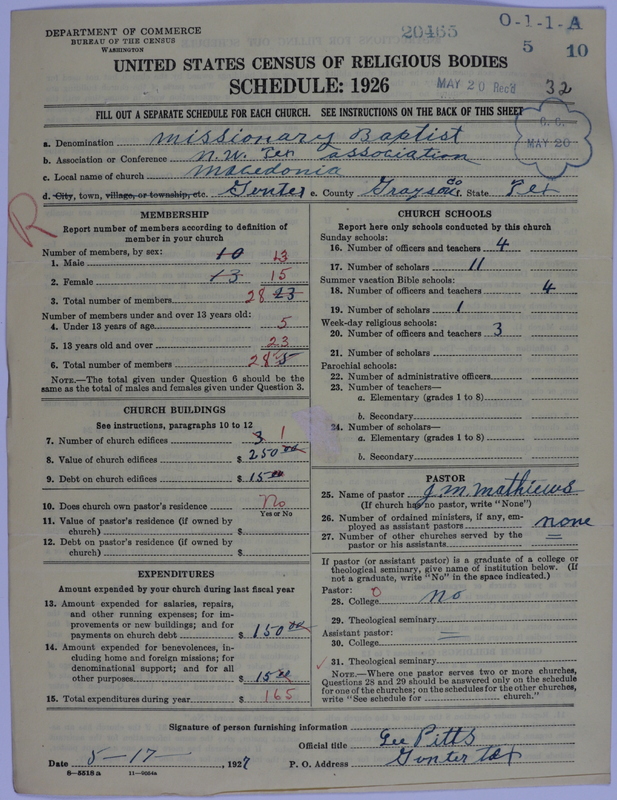 DEPARTMENT OF COMMERCE
BUREAU OF THE CENSUS
WASHINGTON
20465
O-1-1-A
5 10
UNITED STATES CENSUS OF RELIGIOUS BODIES
SCHEDULE: 1926
MAY 20 Rec'd 32
FILL OUT A SEPARATE SCHEDULE FOR EACH CHURCH. SEE INSTRUCTIONS ON THE BACK OF THIS SHEET
MAY 20
a. Denomination Missionary Baptist
b. Association or Conference N.W. Tex association
c. Local name of church Macedonia
d. City, town, village, or township, etc. Gunter e. County Grayson Co f. State Tex
R
MEMBERSHIP
Report number of members according to definition of
member in your church
Number of members, by sex:
1. Male 10 13
2. Female 13 15
3. Total number of members 28 23
Number of members under and over 13 years old:
4. Under 13 years of age 5
5. 13 years old and over 23
6. Total number of members 28 5
NOTE.—The total given under Question 6 should be the
same as the total of males and females given under Question 3.
CHURCH BUILDINGS
See instructions, paragraphs 10 to 12
7. Number of church edifices 3 1
8. Value of church edifices $ 250 00
9. Debt on church edifices $ 15 00
10. Does church own pastor's residence No
Yes or No
11. Value of pastor's residence (if owned by
church) $
12. Debt on pastor's residence (if owned by
church) $
EXPENDITURES
Amount expended by your church during last fiscal year
13. Amount expended for salaries, repairs,
and other running expenses; for im-
provements or new buildings; and for
payments on church debt $ 150 00
14. Amount expended for benevolences, in-
cluding home and foreign missions; for
denominational support; and for all
other purposes $ 15 00
15. Total expenditures during year $ 165
CHURCH SCHOOLS
Report here only schools conducted by this church
Sunday schools:
16. Number of officers and teachers 4
17. Number of scholars 11
Summer vacation Bible schools:
18. Number of officers and teachers 4
19. Number of scholars 1
Week-day religious schools:
20. Number of officers and teachers 3
21. Number of scholars
Parochial schools:
22. Number of administrative officers
23. Number of teachers—
a. Elementary (grades 1 to 8)
b. Secondary
24. Number of scholars—
a. Elementary (grades 1 to 8)
b. Secondary
PASTOR
25. Name of pastor J. M. Mathiews
(If church has no pastor, write "None")
26. Number of ordained ministers, if any, em-
ployed as assistant pastors none
27. Number of other churches served by the
pastor or his assistants
If pastor (or assistant pastor) is a graduate of a college or
theological seminary, give name of institution below. (If
not a graduate, write "No" in the space indicated.)
Pastor: 0
28. College No
29. Theological seminary
Assistant pastor:
30. College
31. Theological seminary
NOTE.—Where one pastor serves two or more churches,
Questions 28 and 29 should be answered only on the schedule
for one of the churches; on the schedules for the other churches,
write "See schedule for church."
Signature of person furnishing information
Official title Lee Pitts
Date 5-17-, 1927 P. O. Address Gunter Tex
8-5518 a 11-9084a